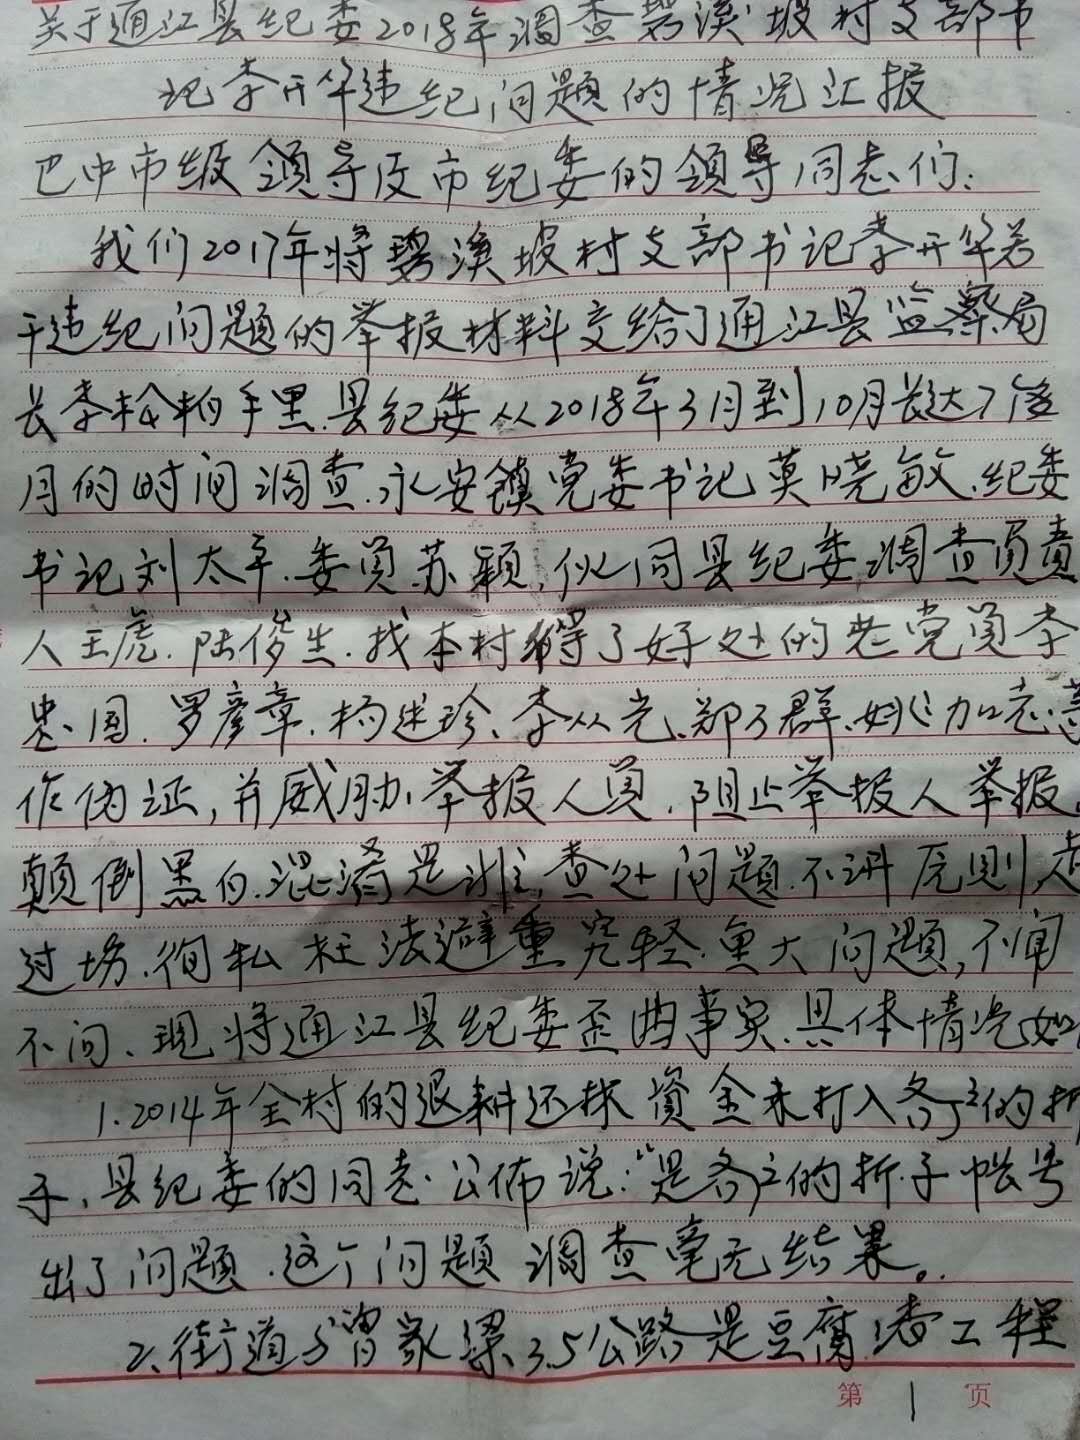 关于通江县纪委2018年调查碧溪坡村支部书
记李开华违纪问题的情况汇报
巴中市级领导及市纪委的领导同志们:
我们2017年将碧溪坡村支部书记李开华若
干违纪问题的举报材料交给了通江县监察局
长李松柏手里.县纪委从2018年3月到10月长达7个
月的时间调查.永安镇党委书记莫晓敏.纪委
书记刘太平.委员苏颖,伙同县纪委调查负责
人王虎.陆俊生.找本村得了好处的老党员李
忠国.罗彦章.杨述珍、李从光、郑子群、姚加志等
作伪证,并威胁举报人员.阻止举报人举报.
颠倒黑白.混淆是非,查处问题.不讲原则,走
过场.徇私枉法避重究轻.重大问题,不闻
不问、现将通江县纪委歪曲事实.具体情况如
1.2014年全村的退耕还林资金未打入各户的折
子、县纪委的同志公佈说:“是各户的折子帐号
出了问题.这个问题调查毫无结果。
2、街道与曾家梁3.5公路是豆腐渣工程
第 1 页